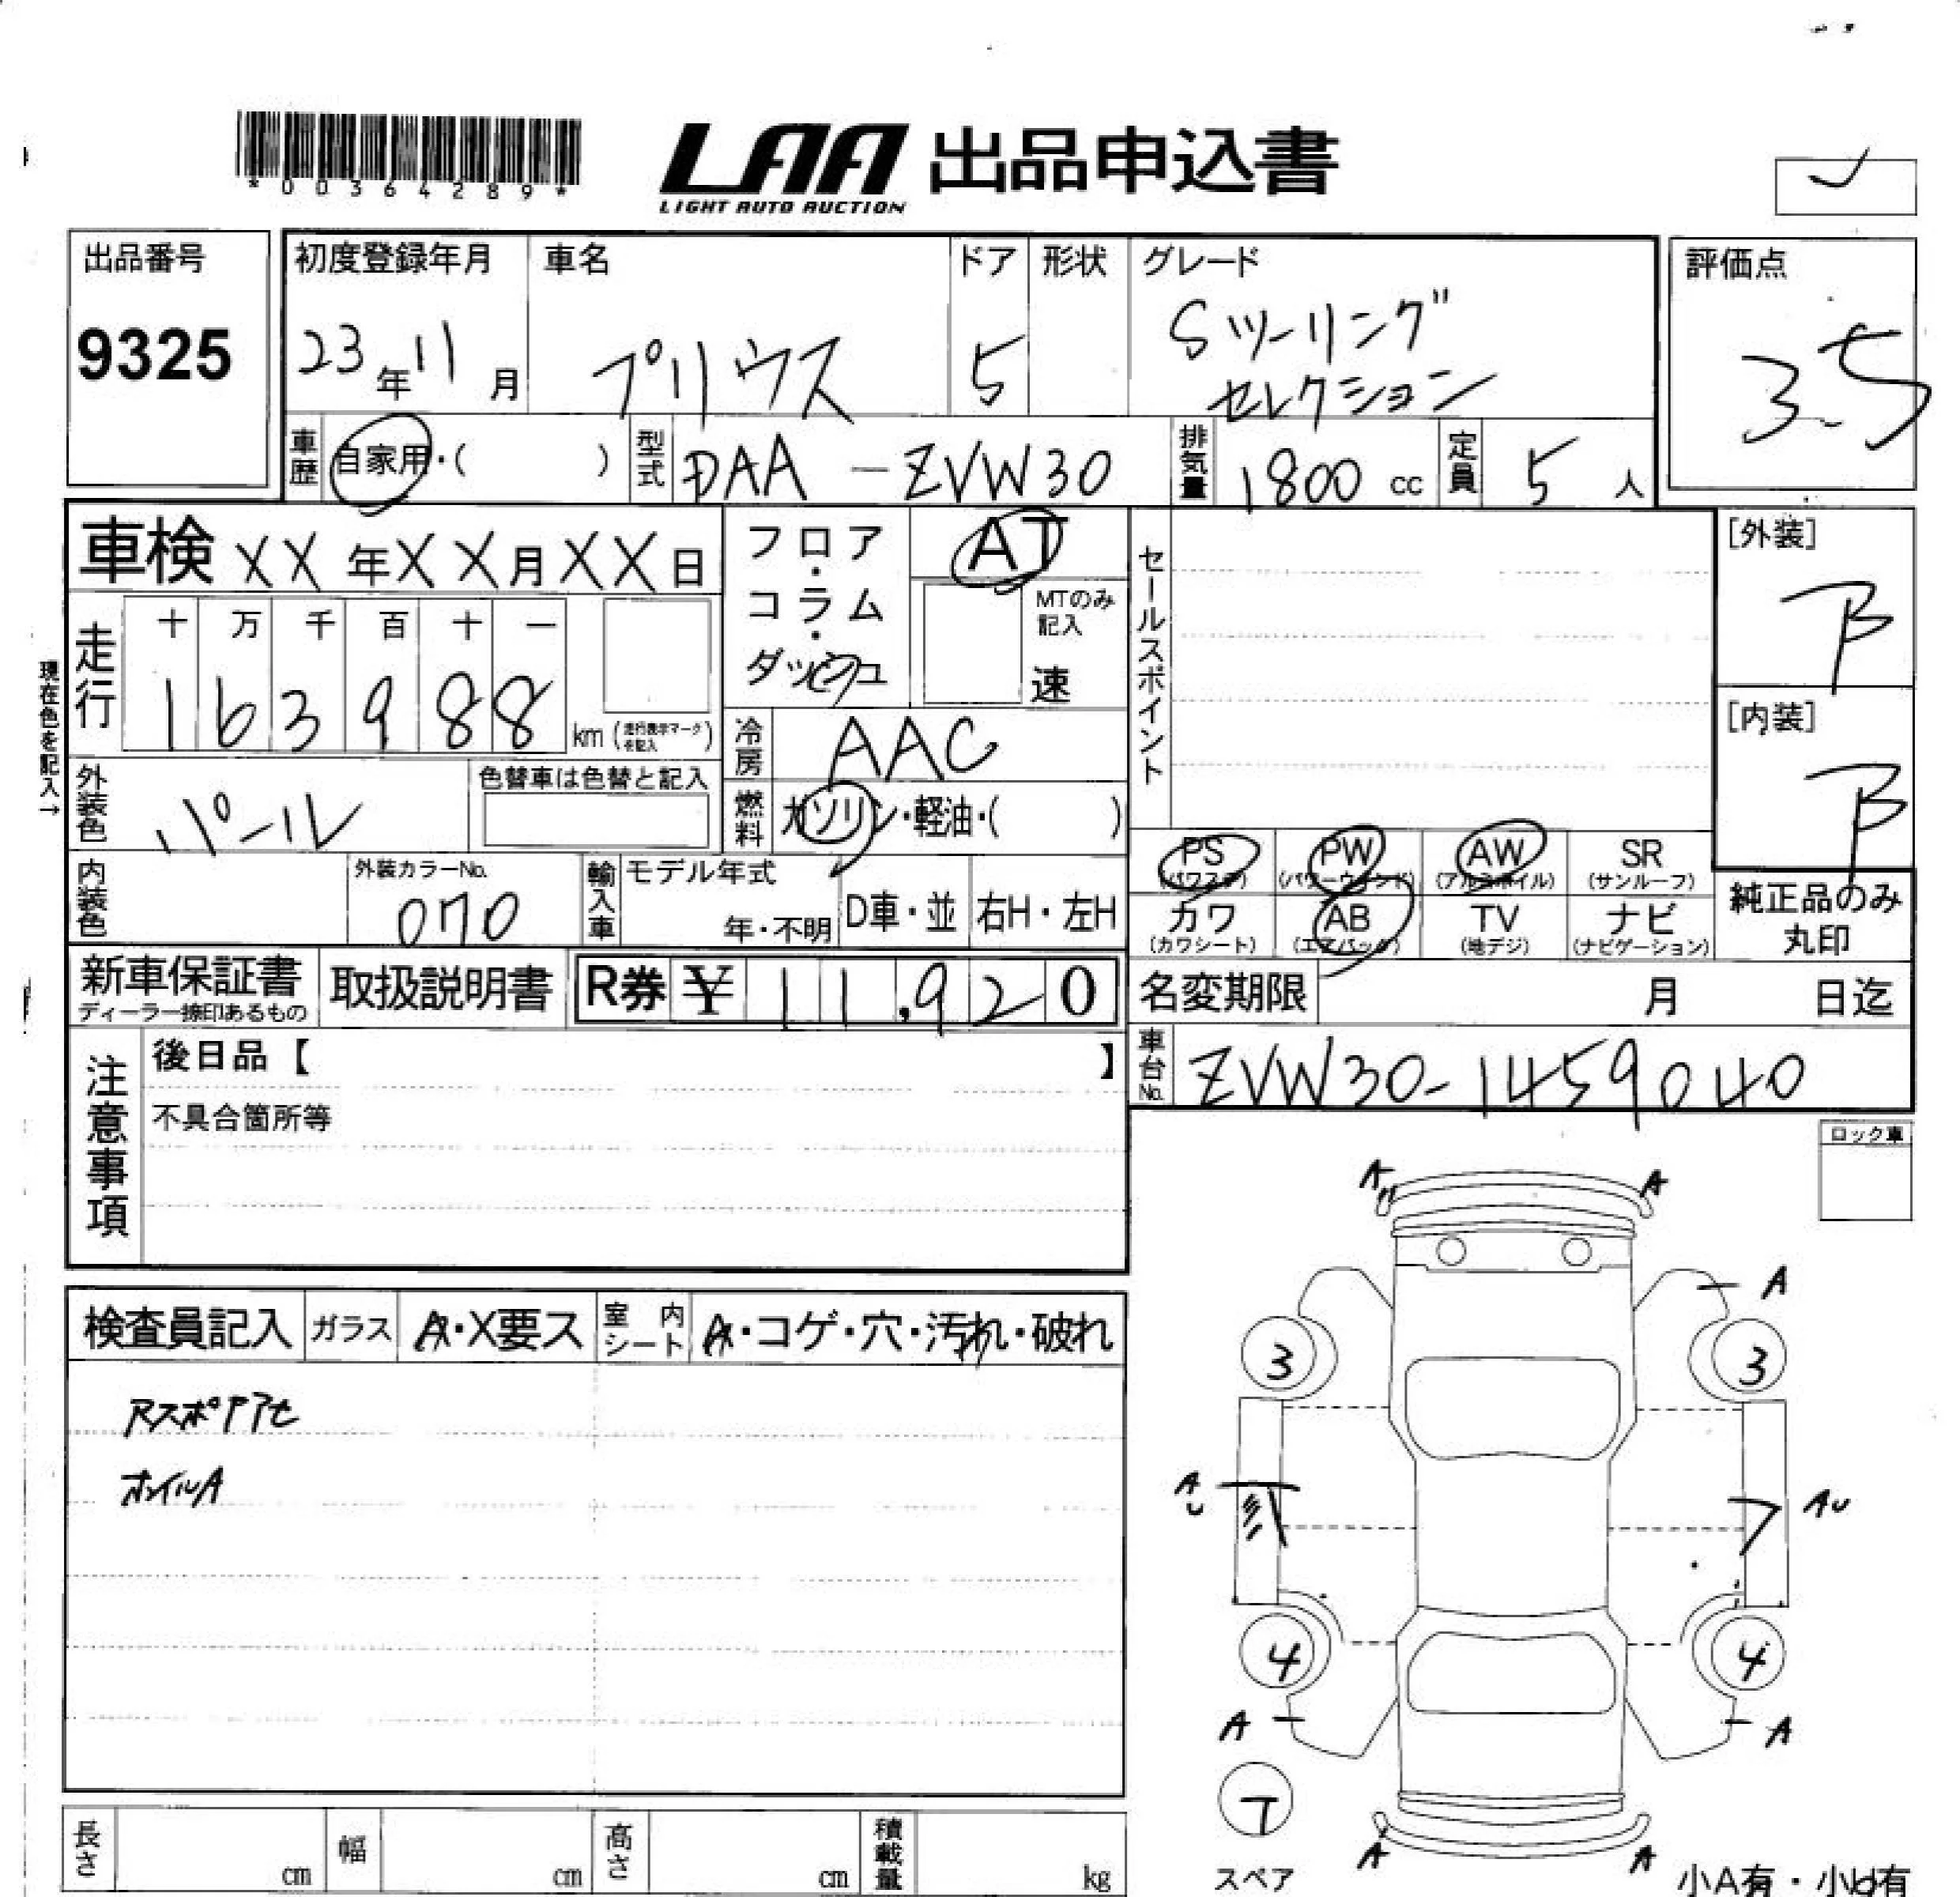 *00364289*
LAA 出品申込書
LIGHT AUTO AUCTION
出品番号
9325
初度登録年月
23年11月
車名
プリウス
ドア
5
形状
グレード
Sツーリング
セレクション
評価点
3.5
車歴
自家用・( )
型式
DAA-ZVW30
排気量
1800 cc
定員
5 人
車検 XX年XX月XX日
フロア・コラム・ダッシュ
AT
MTのみ記入
速
セールスポイント
[外装]
B
[内装]
B
現在色を記入→
走行
十 万 千 百 十 一
1 6 3 9 8 8
km (走行表示マークを記入)
冷房
AAC
外装色
パール
色替車は色替と記入
燃料
ガソリン・軽油・( )
内装色
外装カラーNo.
070
輸入車
モデル年式
年・不明
D車・並
右H・左H
PS
(パワステ)
PW
(パワーウィンド)
AW
(アルミホイル)
SR
(サンルーフ)
カワ
(カワシート)
AB
(エアバック)
TV
(地デジ)
ナビ
(ナビゲーション)
純正品のみ
丸印
新車保証書
ディーラー捺印あるもの
取扱説明書
R券 ¥ 11,920
名変期限
月 日迄
車台No.
ZVW30-1459040
注意事項
後日品【 】
不具合箇所等
ロック車
検査員記入
ガラス
A・X要ス
室内シート
A・コゲ・穴・汚れ・破れ
ホイルA
A
A
A
3
3
AU
AU
4
4
A
A
T
スペア
A
A
小A有・小U有
長さ
cm
幅
cm
高さ
cm
積載量
kg